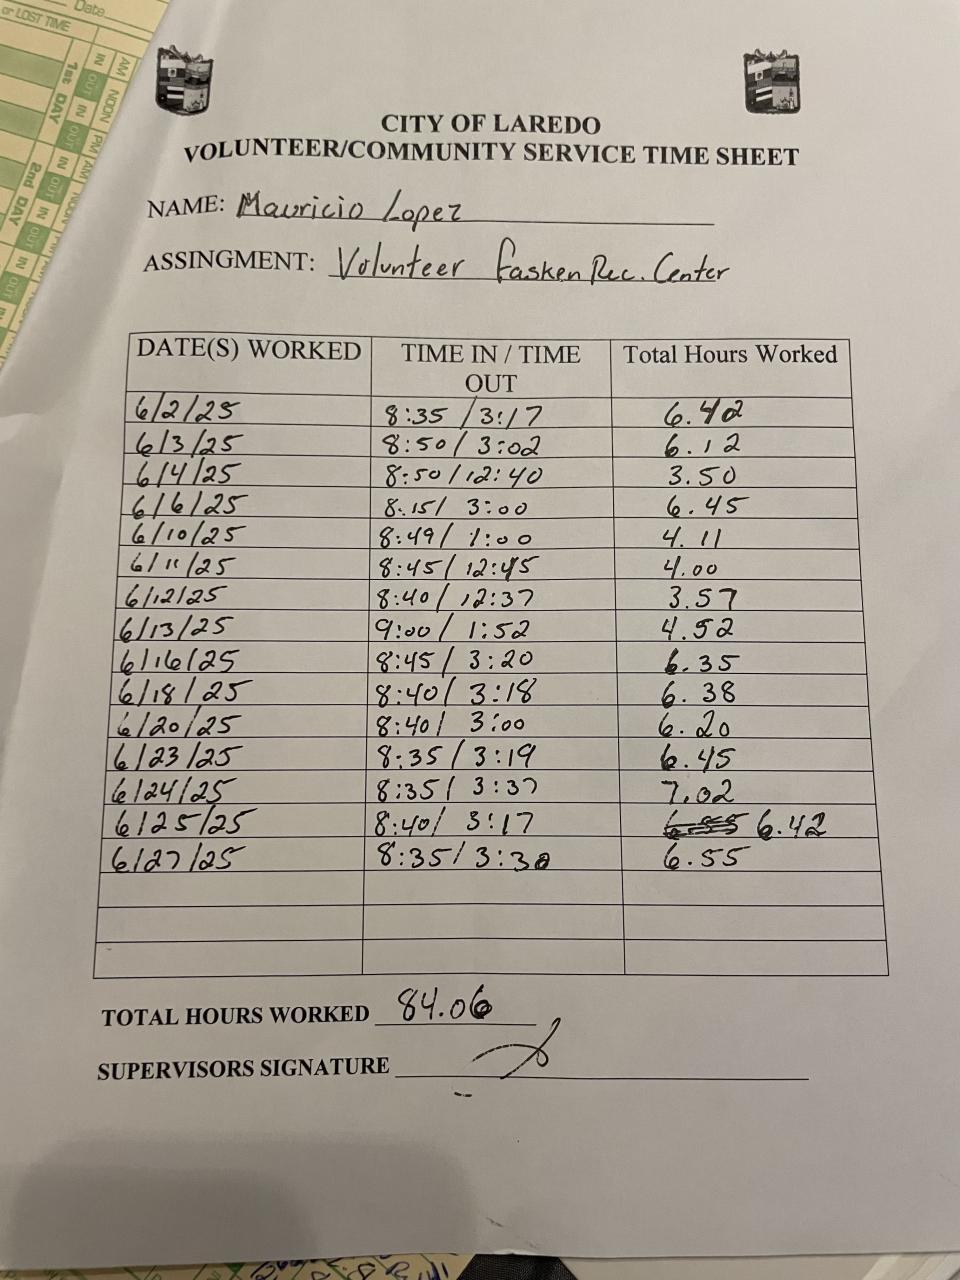 Date
or LOST TIME
AM NOON PM AM NOON
IN OUT IN OUT IN OUT IN OUT IN OUT IN
1st DAY
2nd DAY
CITY OF LAREDO
VOLUNTEER/COMMUNITY SERVICE TIME SHEET
NAME: Mauricio Lopez
ASSINGMENT: Volunteer Fasken Rec. Center
DATE(S) WORKED TIME IN / TIME OUT Total Hours Worked
6/2/25 8:35 / 3:17 6.42
6/3/25 8:50 / 3:02 6.12
6/4/25 8:50 / 12:40 3.50
6/6/25 8:15 / 3:00 6.45
6/10/25 8:49 / 1:00 4.11
6/11/25 8:45 / 12:45 4.00
6/12/25 8:40 / 12:37 3.57
6/13/25 9:00 / 1:52 4.52
6/16/25 8:45 / 3:20 6.35
6/18/25 8:40 / 3:18 6.38
6/20/25 8:40 / 3:00 6.20
6/23/25 8:35 / 3:19 6.45
6/24/25 8:35 / 3:37 7.02
6/25/25 8:40 / 3:17 6.42
6/27/25 8:35 / 3:30 6.55
TOTAL HOURS WORKED 84.06
SUPERVISORS SIGNATURE